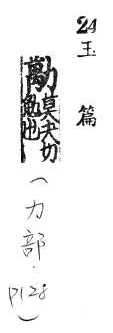 24
玉篇
勱
莫夬切
勉也
(力部·P128)